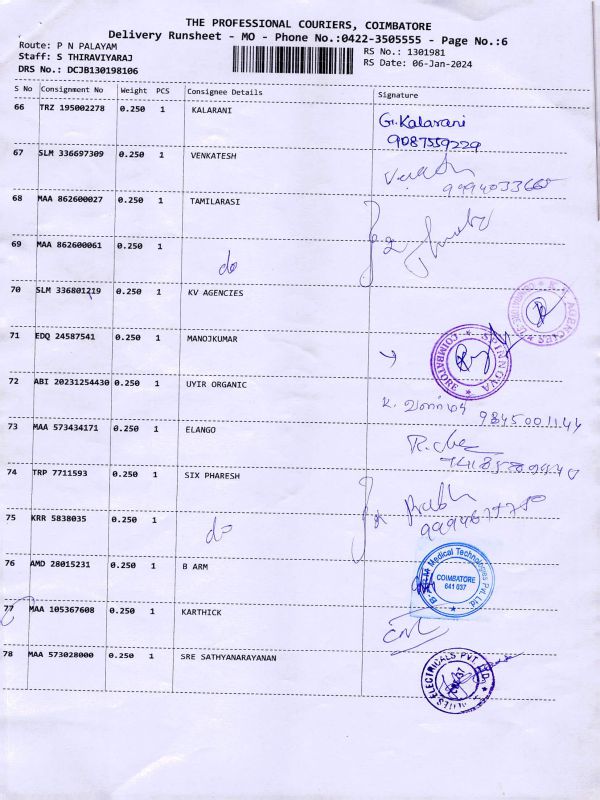 THE PROFESSIONAL COURIERS, COIMBATORE
Delivery Runsheet - MO - Phone No.:0422-3505555 - Page No.:6
Route: P N PALAYAM
RS No.: 1301981
Staff: S THIRAVIYARAJ
RS Date: 06-Jan-2024
DRS No.: DCJB130198106
S No Consignment No Weight PCS Consignee Details Signature
66 TRZ 195002278 0.250 1 KALARANI G.Kalarani
9087559229
67 SLM 336697309 0.250 1 VENKATESH
68 MAA 862600027 0.250 1 TAMILARASI
69 MAA 862600061 0.250 1 do
70 SLM 336801219 0.250 1 KV AGENCIES
71 EDQ 24587541 0.250 1 MANOJKUMAR SPINNOVA COIMBATORE
72 ABI 20231254430 0.250 1 UYIR ORGANIC K.
9845001144
73 MAA 573434171 0.250 1 ELANGO
74 TRP 7711593 0.250 1 SIX PHARESH
75 KRR 5838035 0.250 1 do
76 AMD 28015231 0.250 1 B ARM Medical Technologies Pvt. Ltd
COIMBATORE
641 037
77 MAA 105367608 0.250 1 KARTHICK
78 MAA 573028000 0.250 1 SRE SATHYANARAYANAN ELECTRICALS PVT LTD